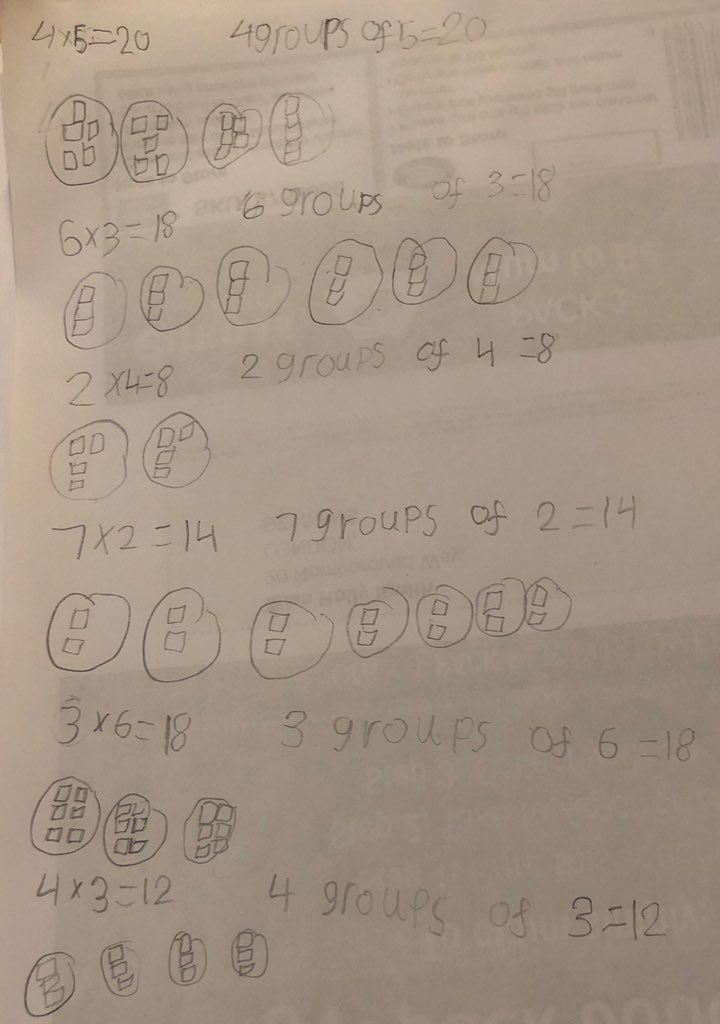 4×5=20 4groups of 5=20
6×3=18 6 groups of 3=18
2×4=8 2 groups of 4=8
7×2=14 7 groups of 2=14
3×6=18 3 groups of 6=18
4×3=12 4 groups of 3=12